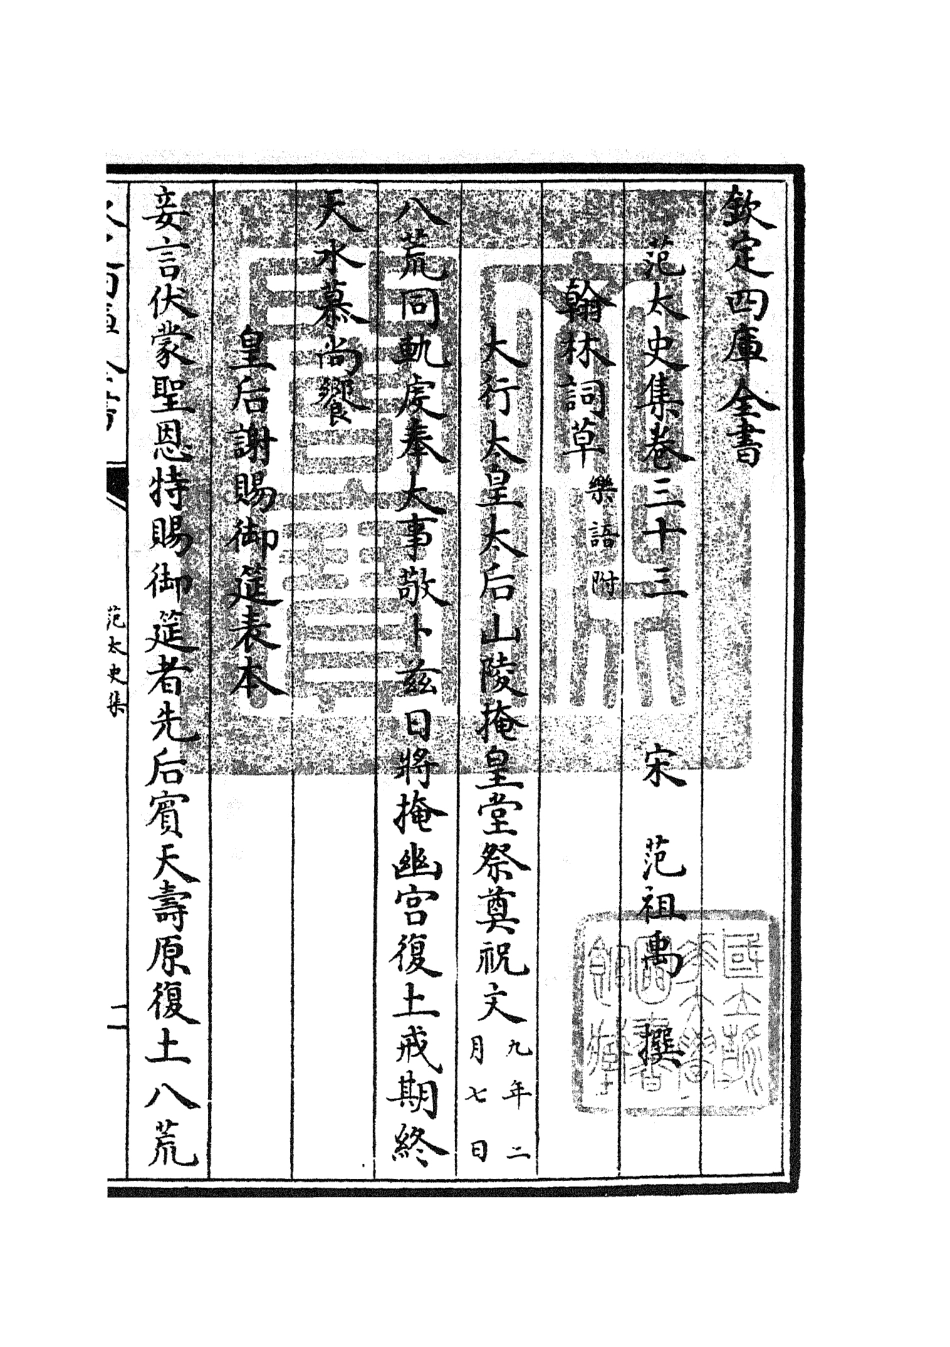 欽定四庫全書
范太史集卷三十三　宋　范祖禹　撰
翰林詞草樂語附
大行太皇太后山陵掩皇堂祭奠祝文九年二月七日
八荒同軌虔奉大事敬卜兹日將掩幽宫復土戒期終
天水慕尚饗
皇后謝賜御筵表本
妾言伏蒙聖恩特賜御筵者先后賓天壽原復土八荒
范太史集
一